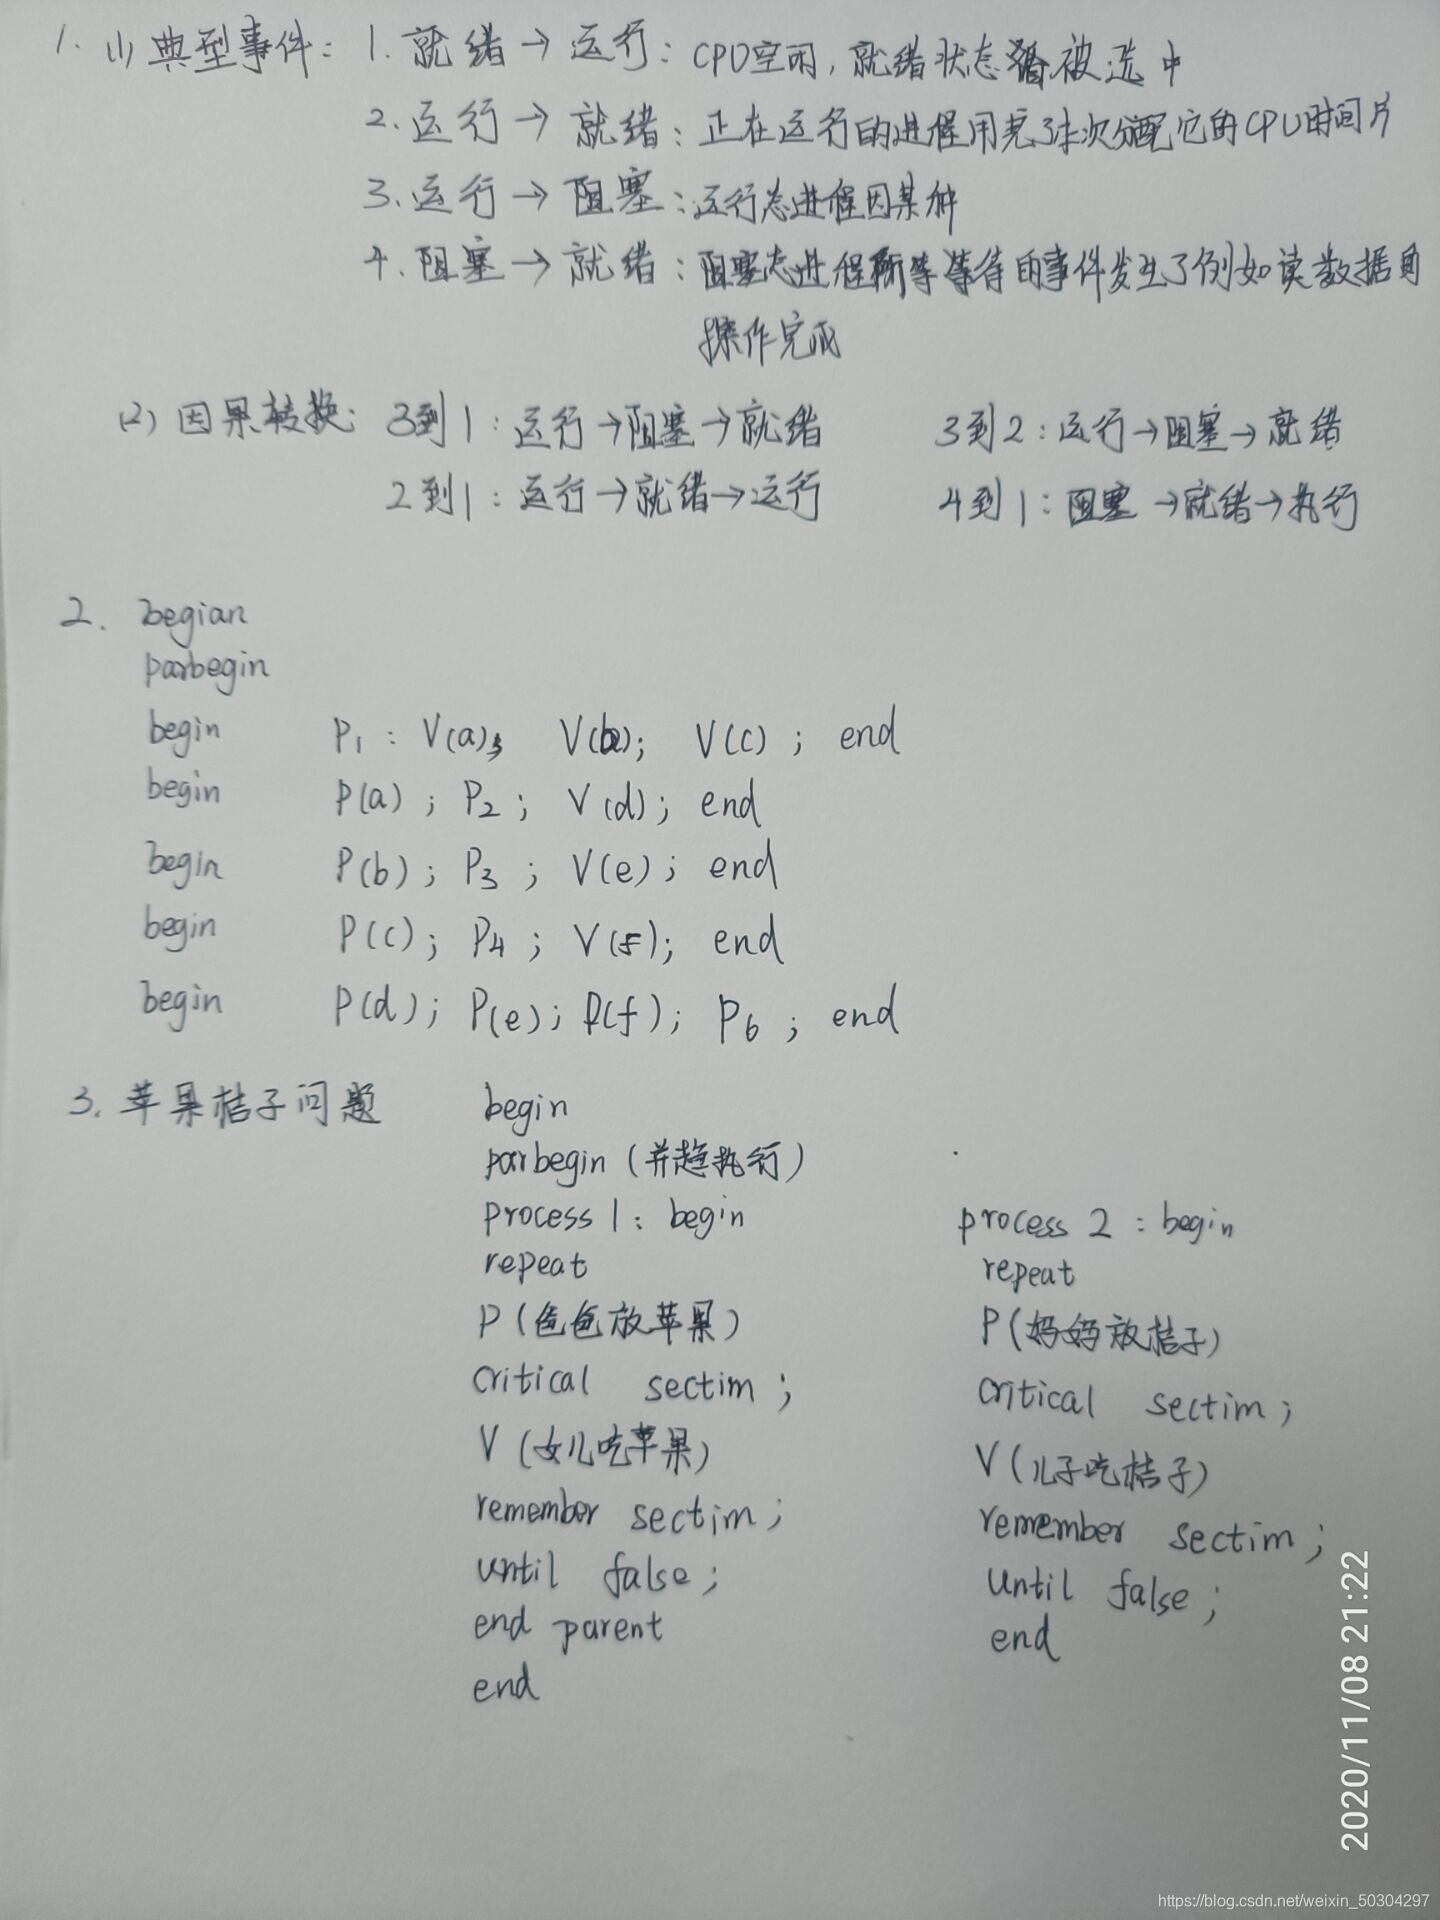 1. (1) 典型事件: 1. 就绪→运行: CPU空闲, 就绪状态被选中
2. 运行→就绪: 正在运行的进程用完了本次分配它的CPU时间片
3. 运行→阻塞: 运行态进程因某种
4. 阻塞→就绪: 阻塞态进程所等等待的事件发生了例如读数据的
操作完成
(2) 因果转换: 3到1: 运行→阻塞→就绪 3到2: 运行→阻塞→就绪
2到1: 运行→就绪→运行 4到1: 阻塞→就绪→执行
2. begian
parbegin
begin P1: V(a); V(b); V(c); end
begin P(a); P2; V(d); end
begin P(b); P3; V(e); end
begin P(c); P4; V(f); end
begin P(d); P(e); P(f); P6; end
3. 苹果桔子问题 begin
parbegin (并趋执行)
process 1: begin process 2: begin
repeat repeat
P(爸爸放苹果) P(妈妈放桔子)
critical sectim; critical sectim;
V(女儿吃苹果) V(儿子吃桔子)
remember sectim; remember sectim;
until false; until false;
end parent end
end
2020/11/08 21:22
https://blog.csdn.net/weixin_50304297